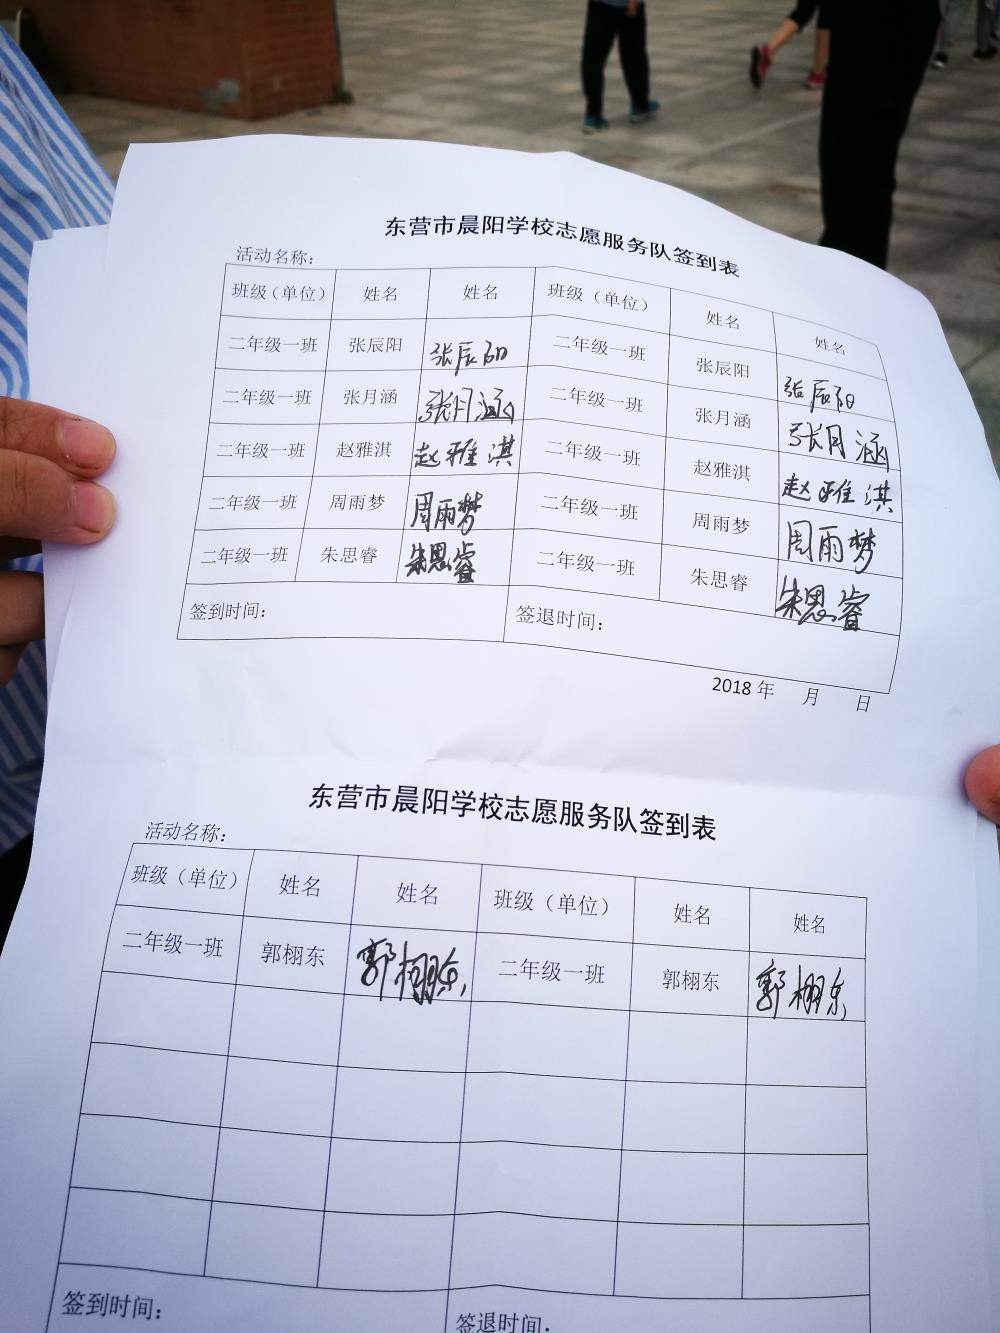 东营市晨阳学校志愿服务队签到表
活动名称：
班级（单位） 姓名 姓名 班级（单位） 姓名 姓名
二年级一班 张辰阳 张辰阳 二年级一班 张辰阳 张辰阳
二年级一班 张月涵 张月涵 二年级一班 张月涵 张月涵
二年级一班 赵雅淇 赵雅淇 二年级一班 赵雅淇 赵雅淇
二年级一班 周雨梦 周雨梦 二年级一班 周雨梦 周雨梦
二年级一班 朱思睿 朱思睿 二年级一班 朱思睿 朱思睿
签到时间： 签退时间：
2018 年 月 日
东营市晨阳学校志愿服务队签到表
活动名称：
班级（单位） 姓名 姓名 班级（单位） 姓名 姓名
二年级一班 郭栩东 郭栩东 二年级一班 郭栩东 郭栩东
签到时间： 签退时间：